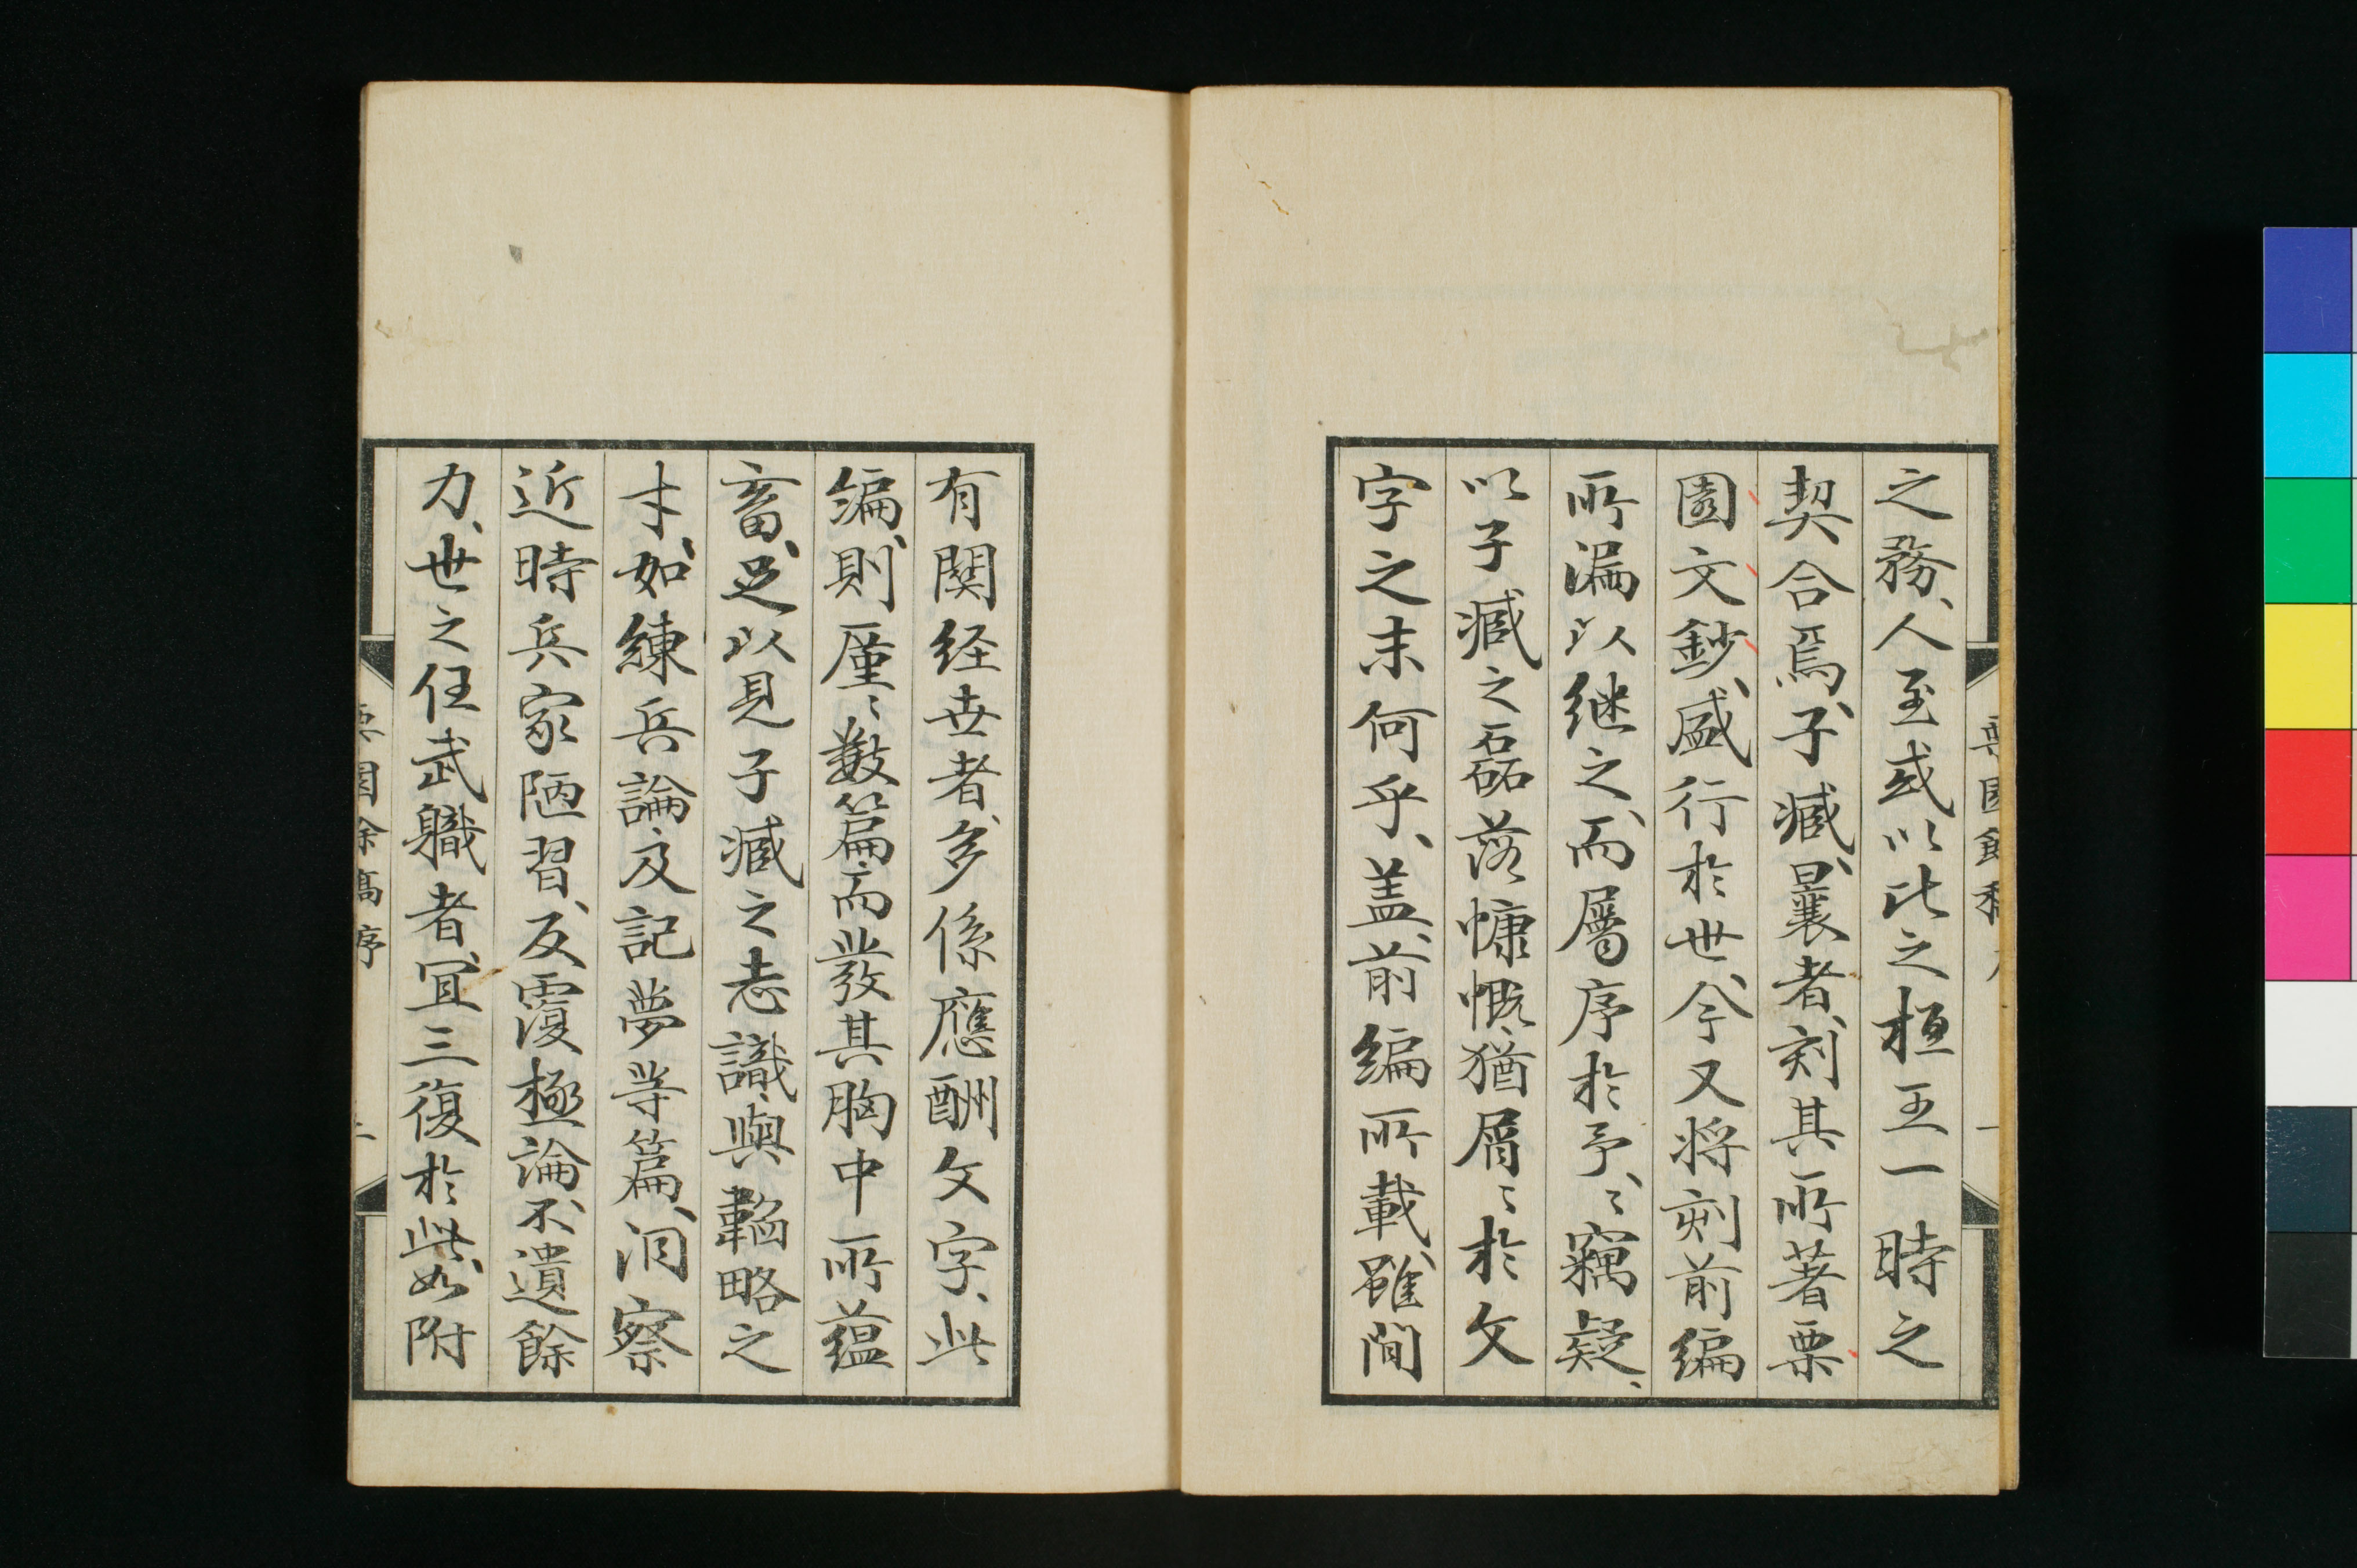 之務、人至或以比之桓王一時之
契合焉、子臧曩者、刻其所著栗
園文鈔、盛行於世、今又将刻前編
所漏以継之、而屬序於予、〻竊疑、
以子臧之磊落慷慨、猶屑〻於文
字之末何乎、盖前編所載、雖間
有関経世者、多係應酬文字、此
編、則厪〻數篇、而發其胸中所蘊
畜、足以見子臧之志識與韜略之
才、如練兵論及記夢等篇、洞察
近時兵家陋習、反覆極論、不遺餘
力、世之任武職者、宜三復於此、如附
栗園餘稿序